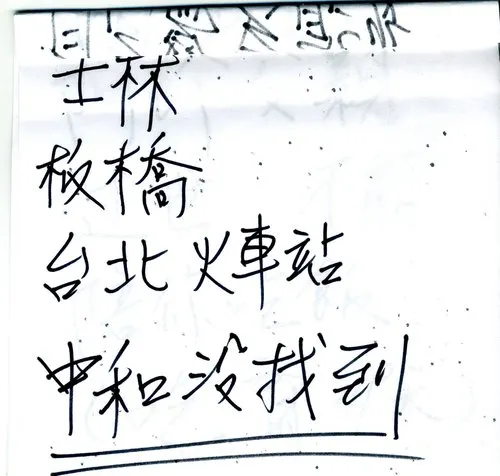 士林
板橋
台北火車站
中和沒找到